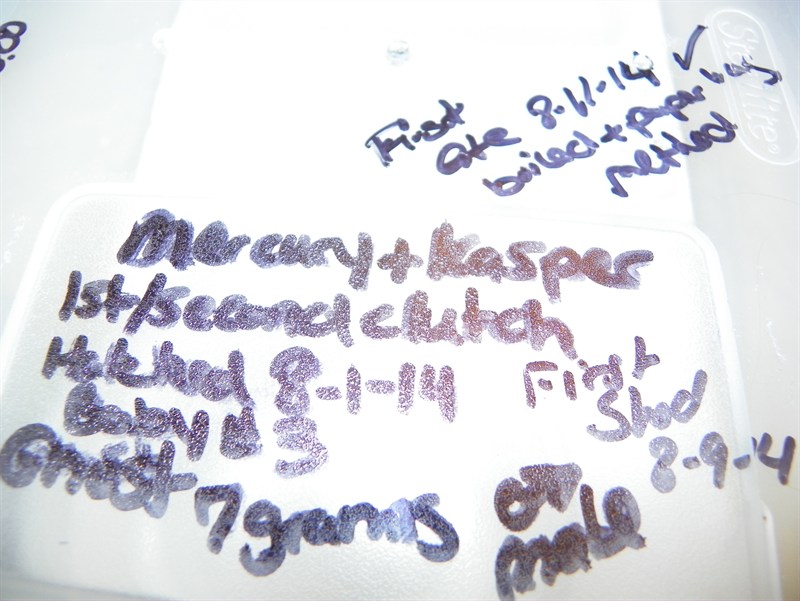 First
ate 8-11-14 ✓
boiled + paper bag
method
Sterilite
Mercury + Kasper
1st/second clutch
Hatched 8-1-14
Baby # 5
Ghost 7grams
First
Shed
8-9-14
♂
male